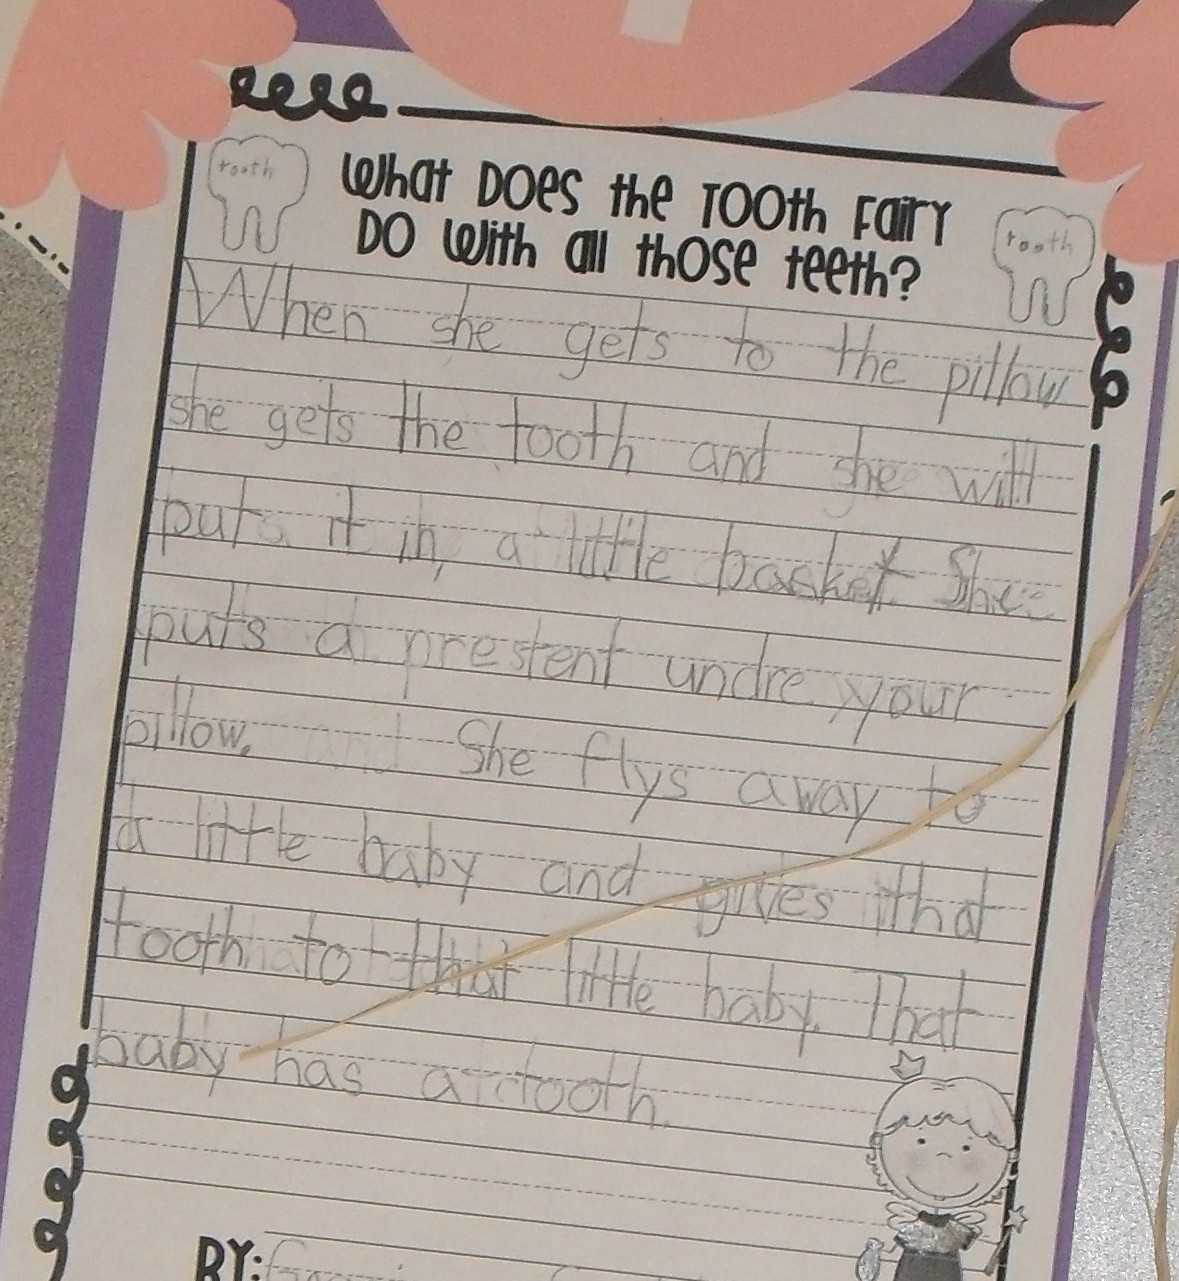 tooth
What Does the Tooth Fairy
Do With all those teeth?
tooth
When she gets to the pillow
she gets the tooth and she will
put it in a little basket She
puts a prestent undre your
pillow. She flys away to
a little baby and gives that
tooth to that little baby. That
baby has a tooth.
BY: